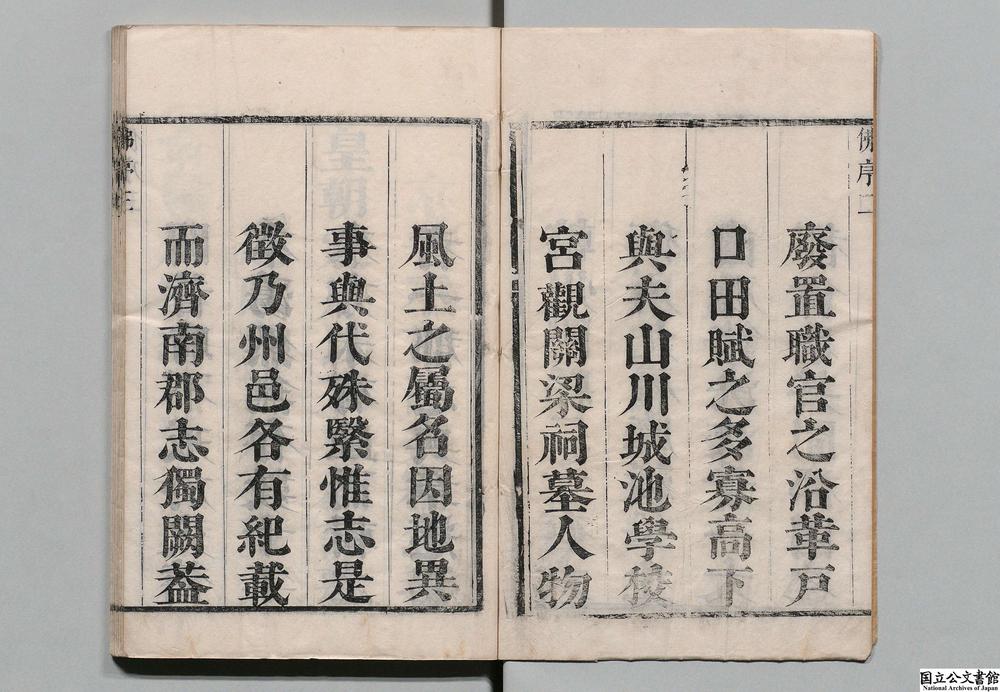 佛序二
廢置職官之沿革戸
口田賦之多寡高下
與夫山川城池學校
宮觀關梁祠墓人物
風土之屬名因地異
事與代殊緊惟志是
徵乃州邑各有紀載
而濟南郡志獨闕葢
佛序三
国立公文書館
National Archives of Japan